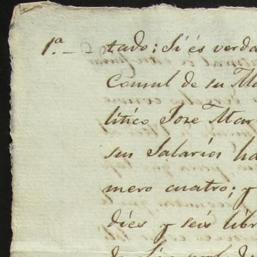 1ª — tado: Si és verda
Consul de su Ma
litico Jose Mar
sus Salarios ha
mero cuatro; y
diez y seis libr